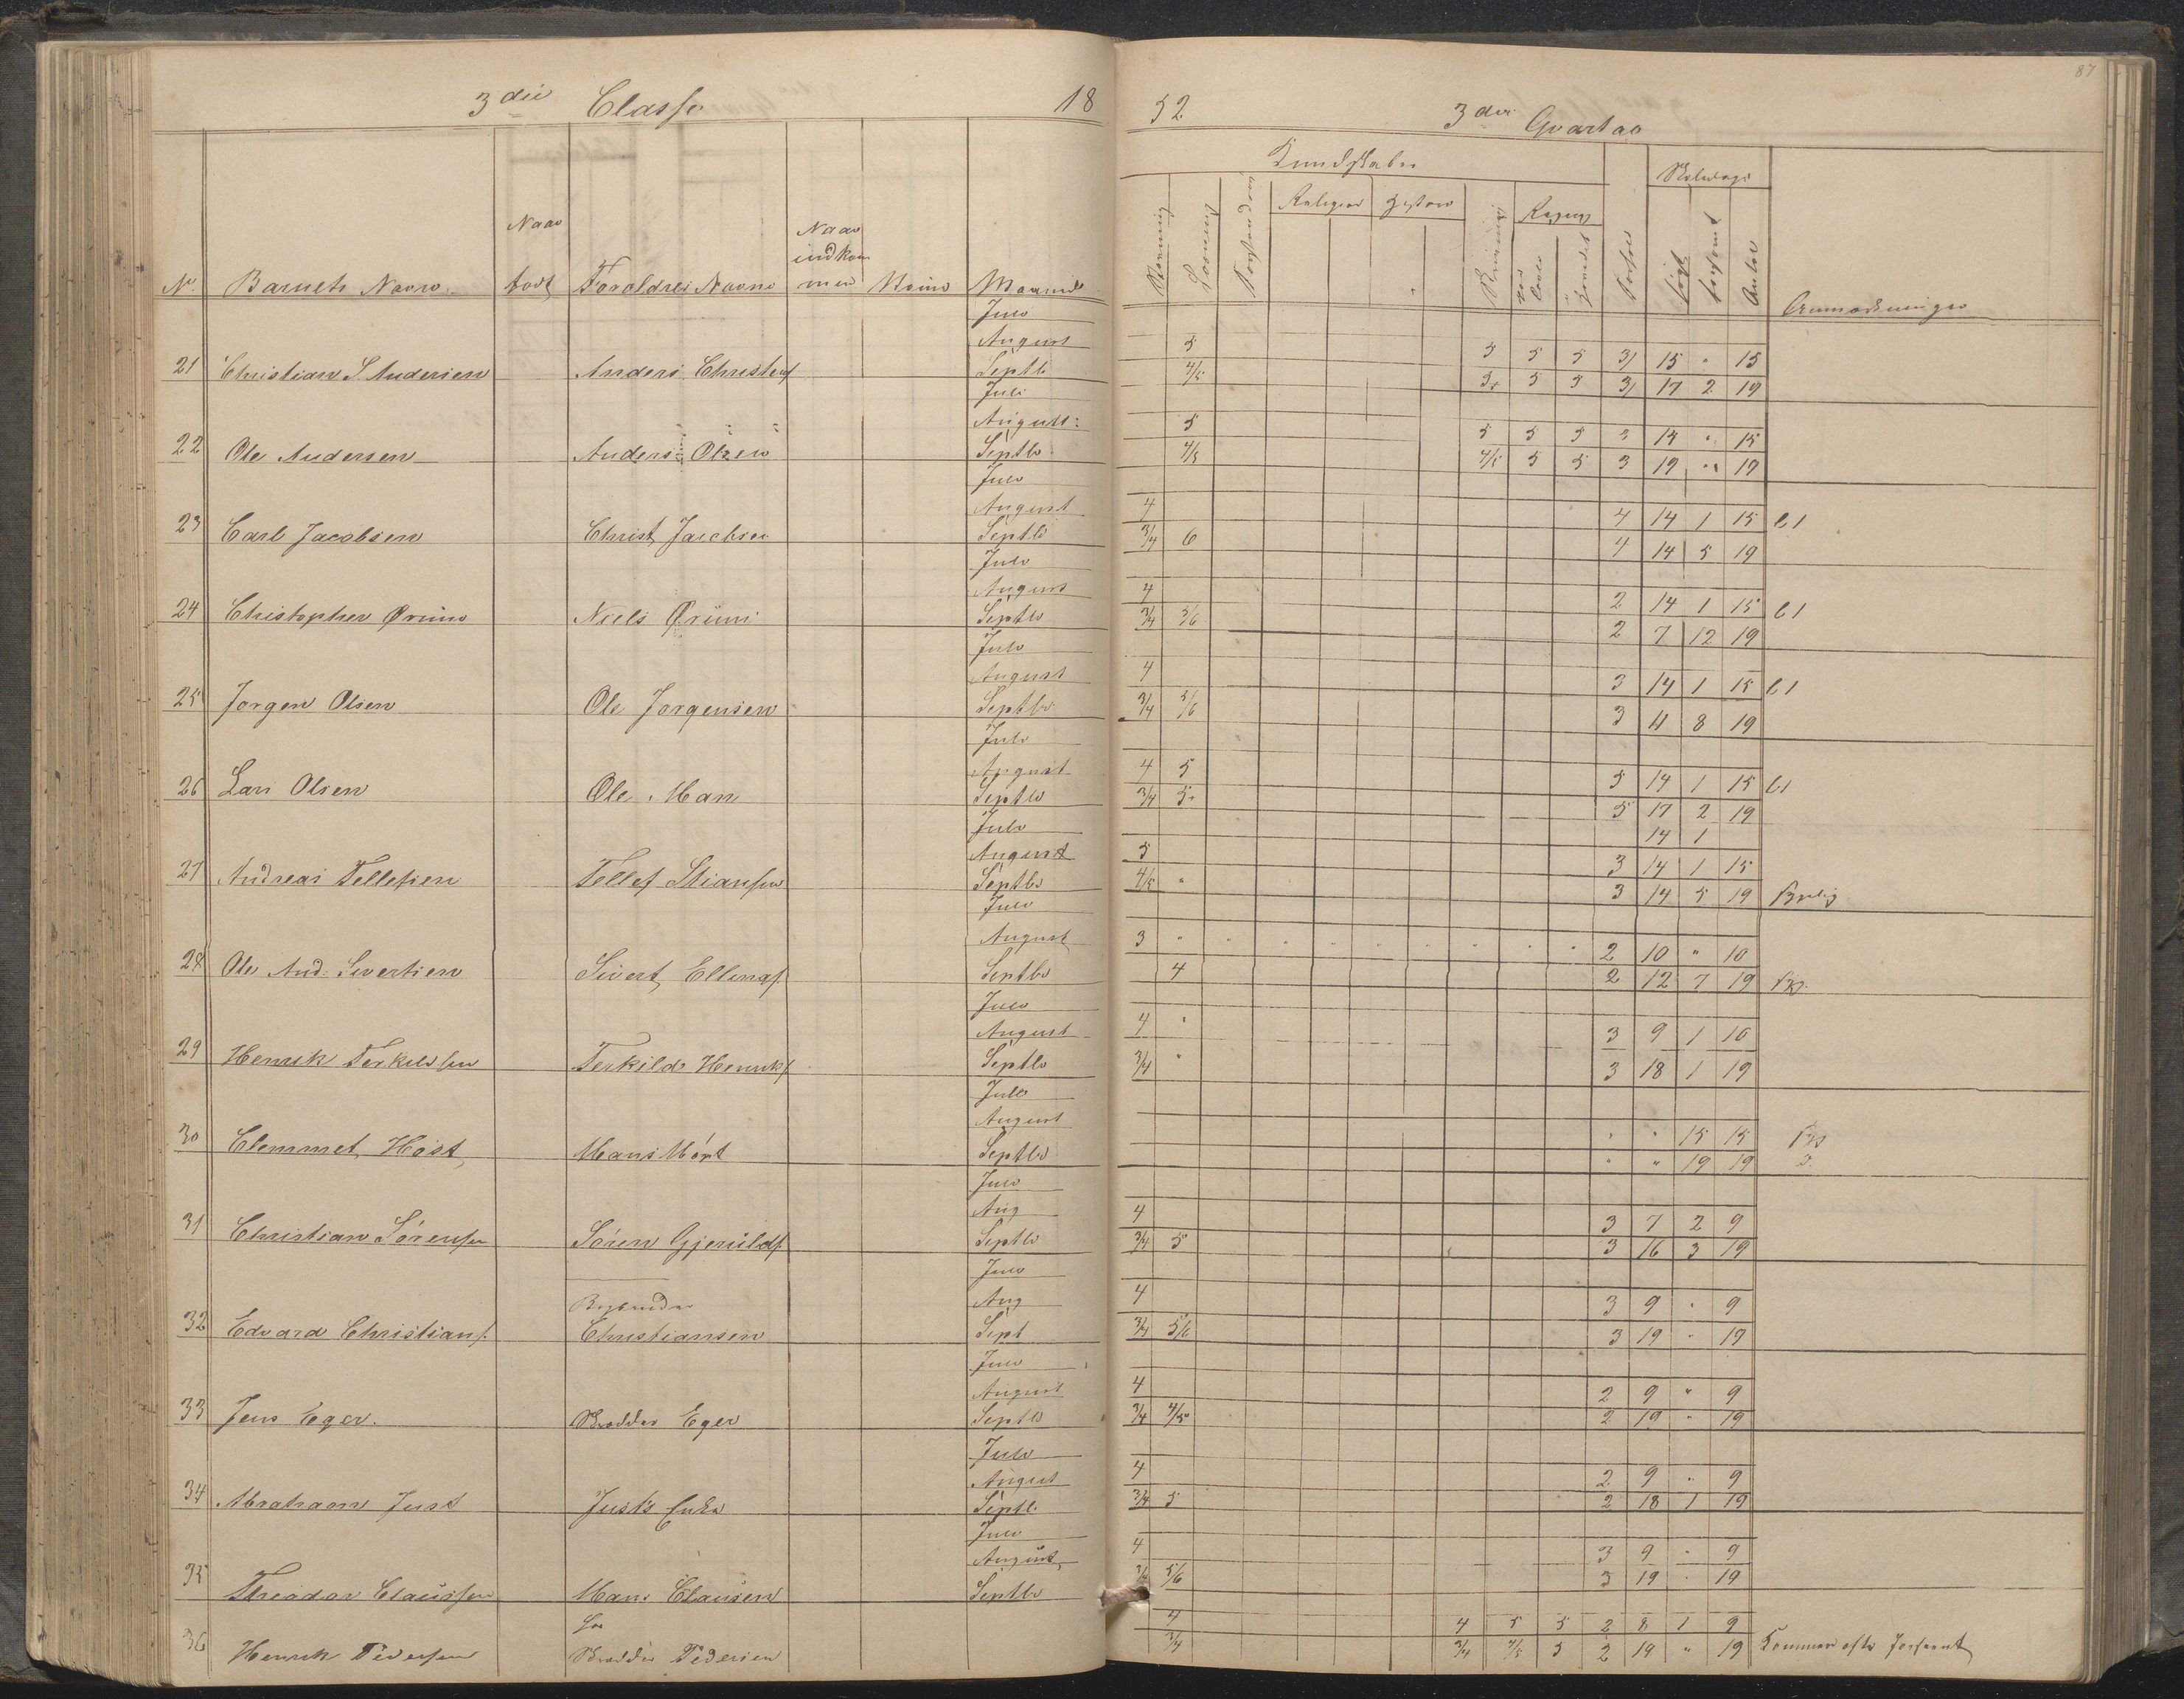 87
3die Classe 18
52 3die Qvartal
Kundskaber
Skoledage
Religion Historie
Regning
No. Barnets Navn. Naar født Forældres Navne Naar indkommen Maaned
Stavning Læsning Forstandsøv Skrivning Tavle Hovedet Forhold søgt forsømt Antal Anmærkninger
Juli
August 5 5 5 5 3/ 15 " 15
21 Christian S. Andersen Anders Christens Septb 4/5 3+ 5 5 3/ 17 2 19
Juli
August: 5 5 5 5 3 14 " 15
22 Ole Andersen Anders Olsen Septbr 4/5 4/5 5 5 3 19 " 19
Juli
August 4 4 14 1 15 l1
23 Carl Jacobsen Christ, Jacobsen Septb 3/4 6 4 14 5 19
Juli
August 4 2 14 1 15 l1
24 Christopher Qrüns Neels Qrüns Septbr 3/4 5/6 2 7 12 19
Juli
August 4 3 14 1 15 l1
25 Jørgen Olsen Ole Jørgensen Septbr 3/4 5/6 3 11 8 19
Juli
August 4 5 5 14 1 15 l1
26 Lars Olsen Ole Man Septbr 3/4 5. 5 17 2 19
Juli 14 1
August 5 3 14 1 15
27 Andreas Tellefsen Tellef Stiansen Septbr 4/5 " 3 14 5 19
Juli
August 3 " " " " " " " " " " 2 10 " 10
28 Ole And. Sivertsen Sivert, Ellings. Septbr 4 2 12 7 19
Juli
August 4 " 3 9 1 10
29 Henrik Terkildsen Terkild Henriks. Septbr 3/4 " 3 18 1 19
Juli
August " " 15 15
30 Clemmet, Høst, Septbr " " 19 19
Juli
Aug 4 3 7 2 9
31 Christian Sørensen Søren Gjerülds. Septbr 3/4 5 3 16 3 19
Juli
Aug 4 3 9 " 9
32 Edvard Christians. Christiansen Sept 3/4 5/6 3 19 " 19
Juli
August 4 2 9 " 9
33 Jens Eger. Skredder Eger Septbr 3/4 4/5 2 19 " 19
Juli
August 4 2 9 " 9
34 Abraham Just Just's Enke Septb 3/4 5 2 18 1 19
Juli
August, 4 3 9 " 9
35 Theodor Claussen Hans Clausen Septbr 3/4 5/6 3 19 " 19
4 4 5 5 2 8 1 9
36 Henrik Pedersen Skredder Pedersen 3/4 3/4 4/5 5 2 19 " 19 Kommer ofte forseent